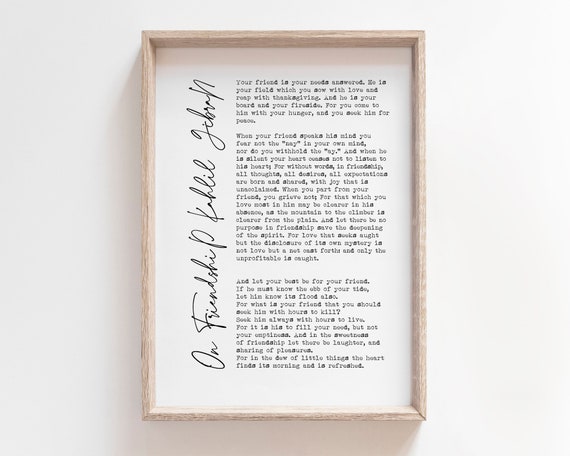 On Friendship Kahlil Gibran
Your friend is your needs answered. He is
your field which you sow with love and
reap with thanksgiving. And he is your
board and your fireside. For you come to
him with your hunger, and you seek him for
peace.
When your friend speaks his mind you
fear not the "nay" in your own mind,
nor do you withhold the "ay." And when he
is silent your heart ceases not to listen to
his heart; For without words, in friendship,
all thoughts, all desires, all expectations
are born and shared, with joy that is
unacclaimed. When you part from your
friend, you grieve not; For that which you
love most in him may be clearer in his
absence, as the mountain to the climber is
clearer from the plain. And let there be no
purpose in friendship save the deepening
of the spirit. For love that seeks aught
but the disclosure of its own mystery is
not love but a net cast forth: and only the
unprofitable is caught.
And let your best be for your friend.
If he must know the ebb of your tide,
let him know its flood also.
For what is your friend that you should
seek him with hours to kill?
Seek him always with hours to live.
For it is his to fill your need, but not
your emptiness. And in the sweetness
of friendship let there be laughter, and
sharing of pleasures.
For in the dew of little things the heart
finds its morning and is refreshed.